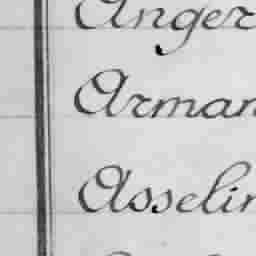 Anger
Arman
Asselin